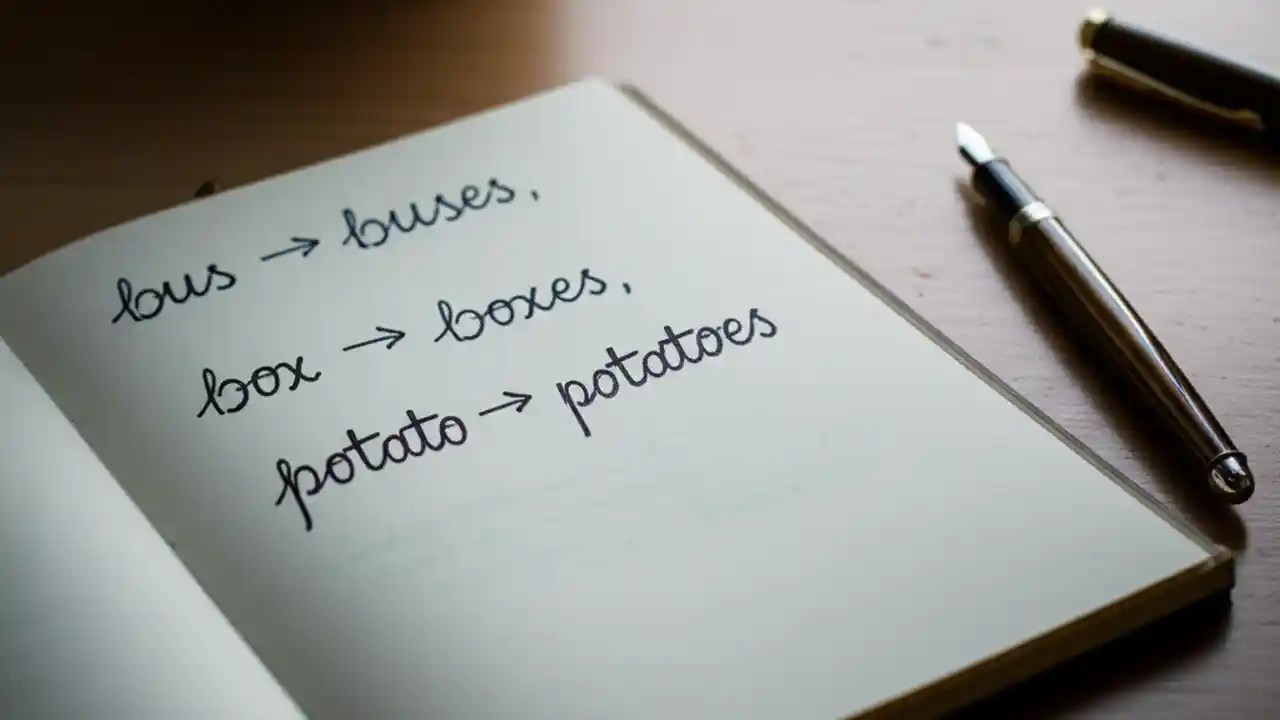 bus → buses,
box → boxes,
potato → potatoes